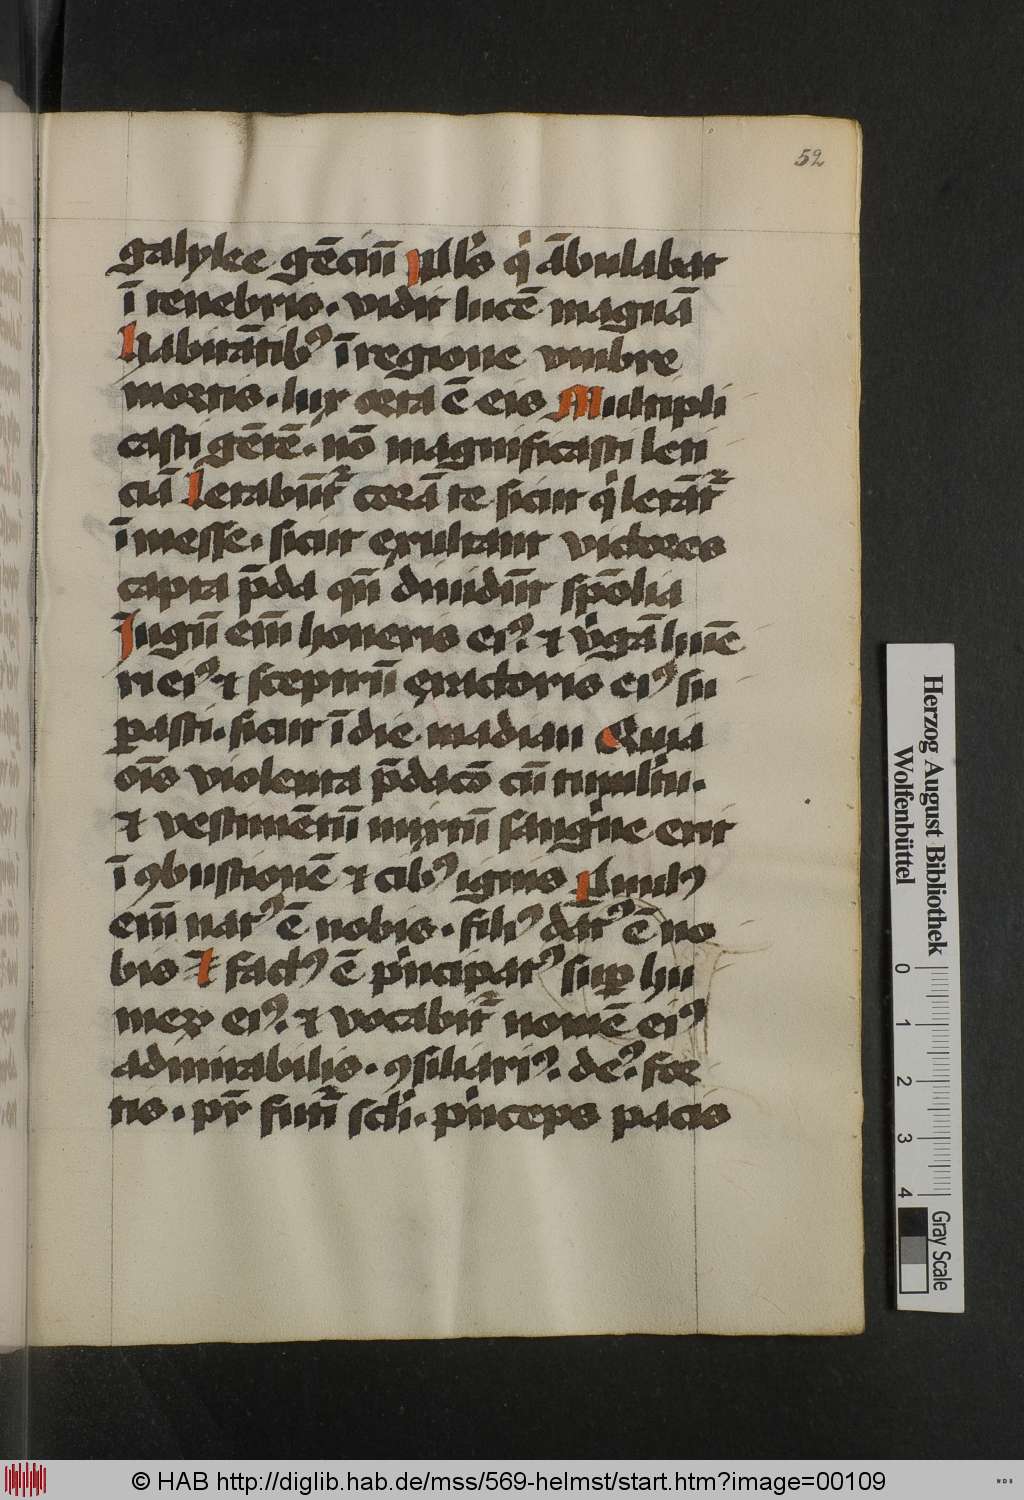 52
galylee gēciū Pl̄s q̇ ābulabat
ī tenebris. vidit lucē magnā
Habitātib⁹ ī regione vmbre
mortis. lux orta ē eis Multipli
casti gētē. nō magnificasti leti
ciā Letabūt᷑ corā te sicut q̇ letāt᷑
ī messe. sicut exultant victores
capta p̄da qn̄ diuidūt spōlia
Jugū em̄ honeris ei⁹. ⁊ v̓gā hūe
ri ei⁹ ⁊ sceptrū exactoris ei⁹ su
ꝑasti. sicut ī die madian Quia
oīs violenta p̄dacō cū tumultu.
⁊ vestimētū mixtū sanguīe erit
ī ꝯbustionē ⁊ cib⁹ ignis Puul⁹
em̄ nat⁹ ē nobis. fili⁹ dat⁹ ē no
bis Et fact⁹ ē p̓ncipat⁹ suꝑ hu
merū ei⁹. ⁊ vocabit᷑ nomē ei⁹
admirabilis. ꝯsiliari⁹. de⁹. for
tis. pr̄ futi᷑ scl̓i. p̓nceps pacis
Herzog August Bibliothek
Wolfenbüttel
0 1 2 3 4
Gray Scale
© HAB http://diglib.hab.de/mss/569-helmst/start.htm?image=00109